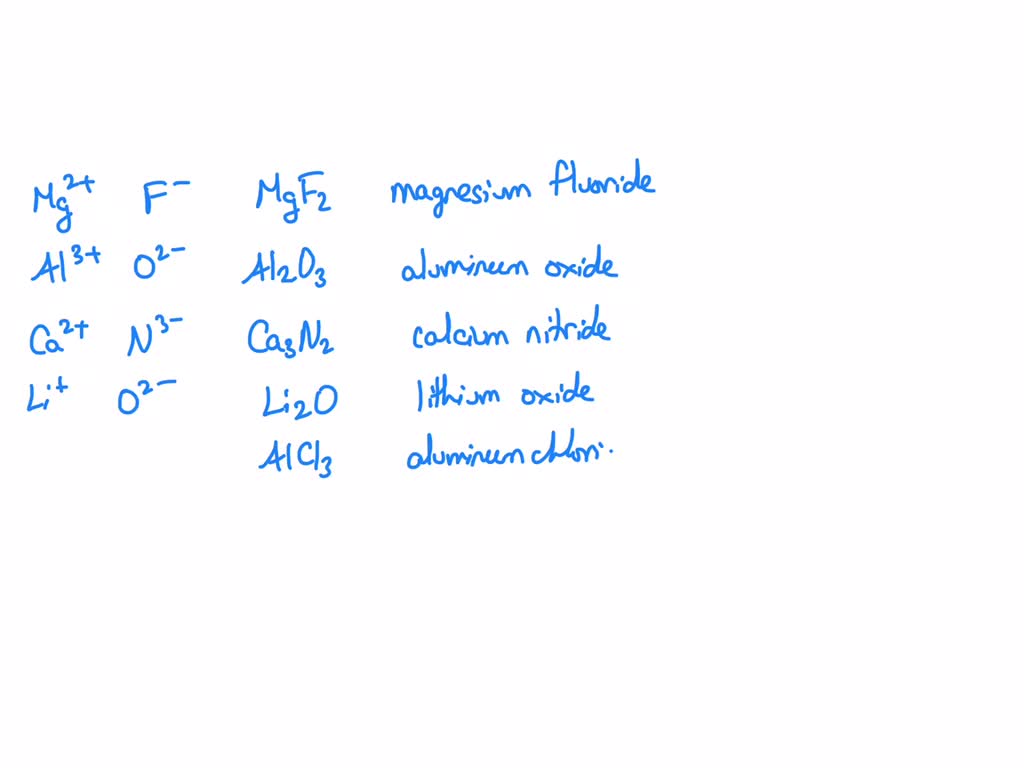 Mg²⁺ F⁻ MgF₂ magnesium fluoride
Al³⁺ O²⁻ Al₂O₃ aluminum oxide
Ca²⁺ N³⁻ Ca₃N₂ calcium nitride
Li⁺ O²⁻ Li₂O lithium oxide
AlCl₃ aluminum chlori